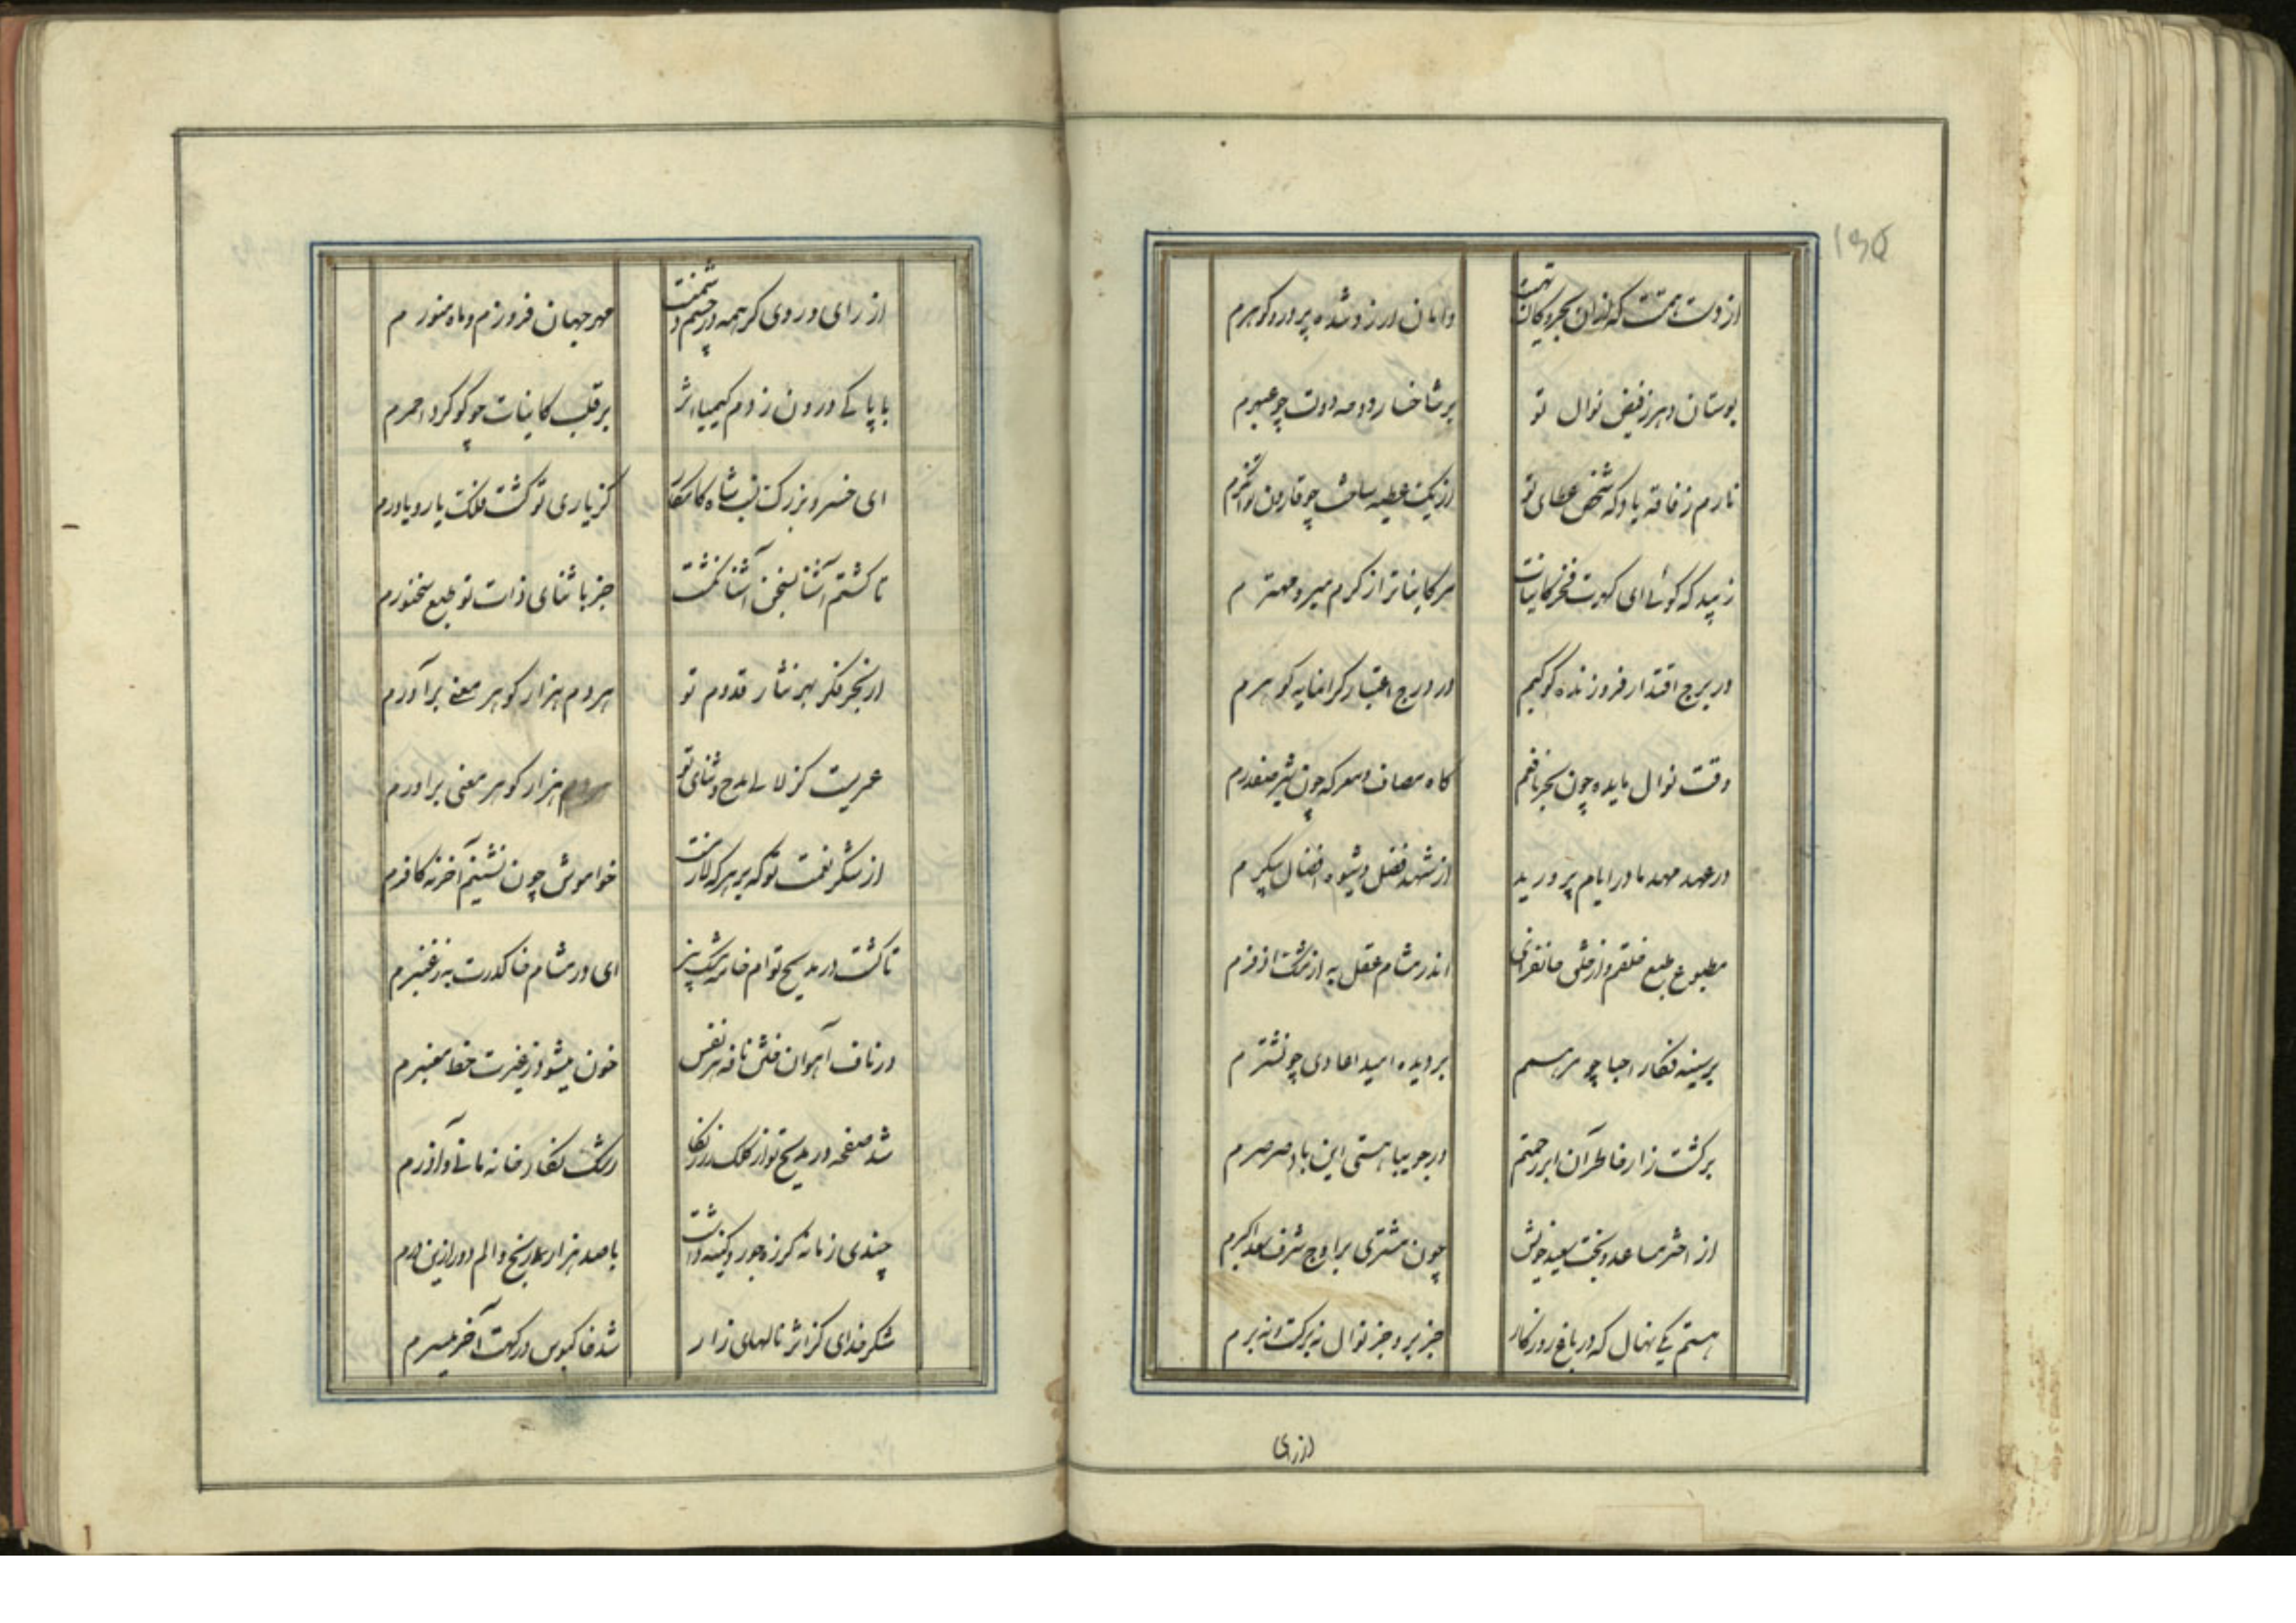 ۱۳۵
از دست همتت که از آن بحر و کان تهیست دامان آرزو شده پر در و گوهرم
بوستان دهر ز فیض نوال تو بر شاخسار دوحه دولت چو عبهرم
نارم ز فاقه یاد که شخص عطای تو از یک عطیه ساخت چو قارون توانگرم
زیبد که گوئی ای گهرت فخر کاینات مر کاینات را ز کرم میر و مهترم
در برج اقتدار فروزنده کوکبم در درج اعتبار گرانمایه گوهرم
وقت نوال مایده چون بحر نافعم گاه مصاف و معرکه چون شیر صفدرم
در عهد مهد مادر ایام پرورید از شهد فضل و شیوه افضال پیکرم
مطبوع طبع خلقم و از خلق جانفزای اندر مشام عقل به از مشک اذفرم
بر سینه فکار احبا چو مرهم بر دیده امید اعادی چو نشترم
بر کشت زار خاطر آن ابر رحمتم در جویبار هستی این باد صرصرم
از اختر مساعد و بخت سعید خویش چون مشتری بر اوج شرف سعد اکبرم
هستم یکی نهال که در باغ روزگار جز بر و جز نوال نه برگست و نه برم
(از رای)
از رای و روی گر همه در چشم دشمنت مهر جهان فروزم و ماه منورم
با پاکی درون ز دم کیمیا اثر بر قلب کاینات چو گوگرد احمرم
ای خسرو بزرگ نسب شاه کامکار کز یاری تو گشت فلک یار و یاورم
تا گشتم آشنا بسخن آشنا نگشت جز با ثنای ذات تو طبع سخنورم
از بحر فکر بهر نثار قدوم تو هر دم هزار گوهر معنی برآورم
عمریست کز لالی مدح و ثنای تو هزار گوهر معنی برآورم
از شکر نعمت تو که بر هر که لازمست خواموش چون نشینم آخر نه کافرم
تا گشت در مدیح توام خامه مشک بیز ای در مشام خاک درت به ز عنبرم
در ناف آهوان ختن نافه هر نفس خون میشود ز غیرت خط معنبرم
شد صفحه در مدیح تو از کلک زرنگار رشک نگار خانه مانی و آذرم
چندی زمانه گر ز ره جور و کینه داشت با صد هزار رنج و الم دور ازین درم
شکر خدای کز اثر نالهای زار شد خاکبوس درگهت آخر میسرم